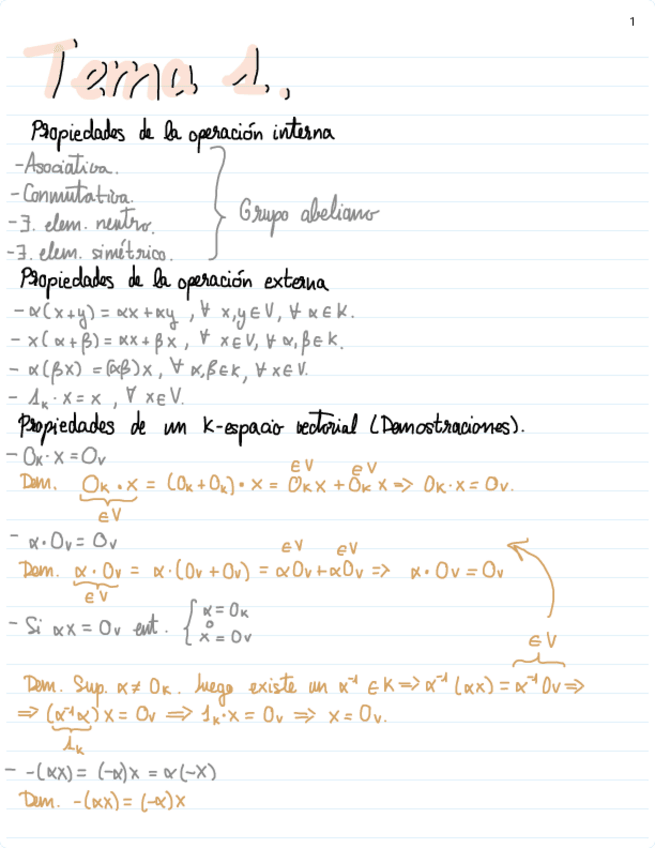 1
Tema 1.
Propiedades de la operación interna
- Asociativa.
- Conmutativa.
- ∃. elem. neutro.
- ∃. elem. simétrico.
} Grupo abeliano
Propiedades de la operación externa
- α(x+y) = αx + αy , ∀ x,y ∈ V, ∀ α ∈ K.
- x(α+β) = αx + βx , ∀ x ∈ V, ∀ α,β ∈ K.
- α(βx) = (αβ)x , ∀ α,β ∈ K, ∀ x ∈ V.
- 1ₖ · x = x , ∀ x ∈ V.
Propiedades de un K-espacio vectorial (Demostraciones).
- 0ₖ · x = 0ᵥ
∈V ∈V
Dem. 0ₖ · x = (0ₖ + 0ₖ) · x = 0ₖ x + 0ₖ x => 0ₖ · x = 0ᵥ.
∈V
- α · 0ᵥ = 0ᵥ
∈V ∈V
Dem. α · 0ᵥ = α · (0ᵥ + 0ᵥ) = α0ᵥ + α0ᵥ => α · 0ᵥ = 0ᵥ
∈V
- Si αx = 0ᵥ ent. { α = 0ₖ
o
x = 0ᵥ
∈V
Dem. Sup. α ≠ 0ₖ. Luego existe un α⁻¹ ∈ K => α⁻¹(αx) = α⁻¹0ᵥ =>
=> (α⁻¹α)x = 0ᵥ => 1ₖ · x = 0ᵥ => x = 0ᵥ.
1ₖ
- -(αx) = (-α)x = α(-x)
Dem. -(αx) = (-α)x